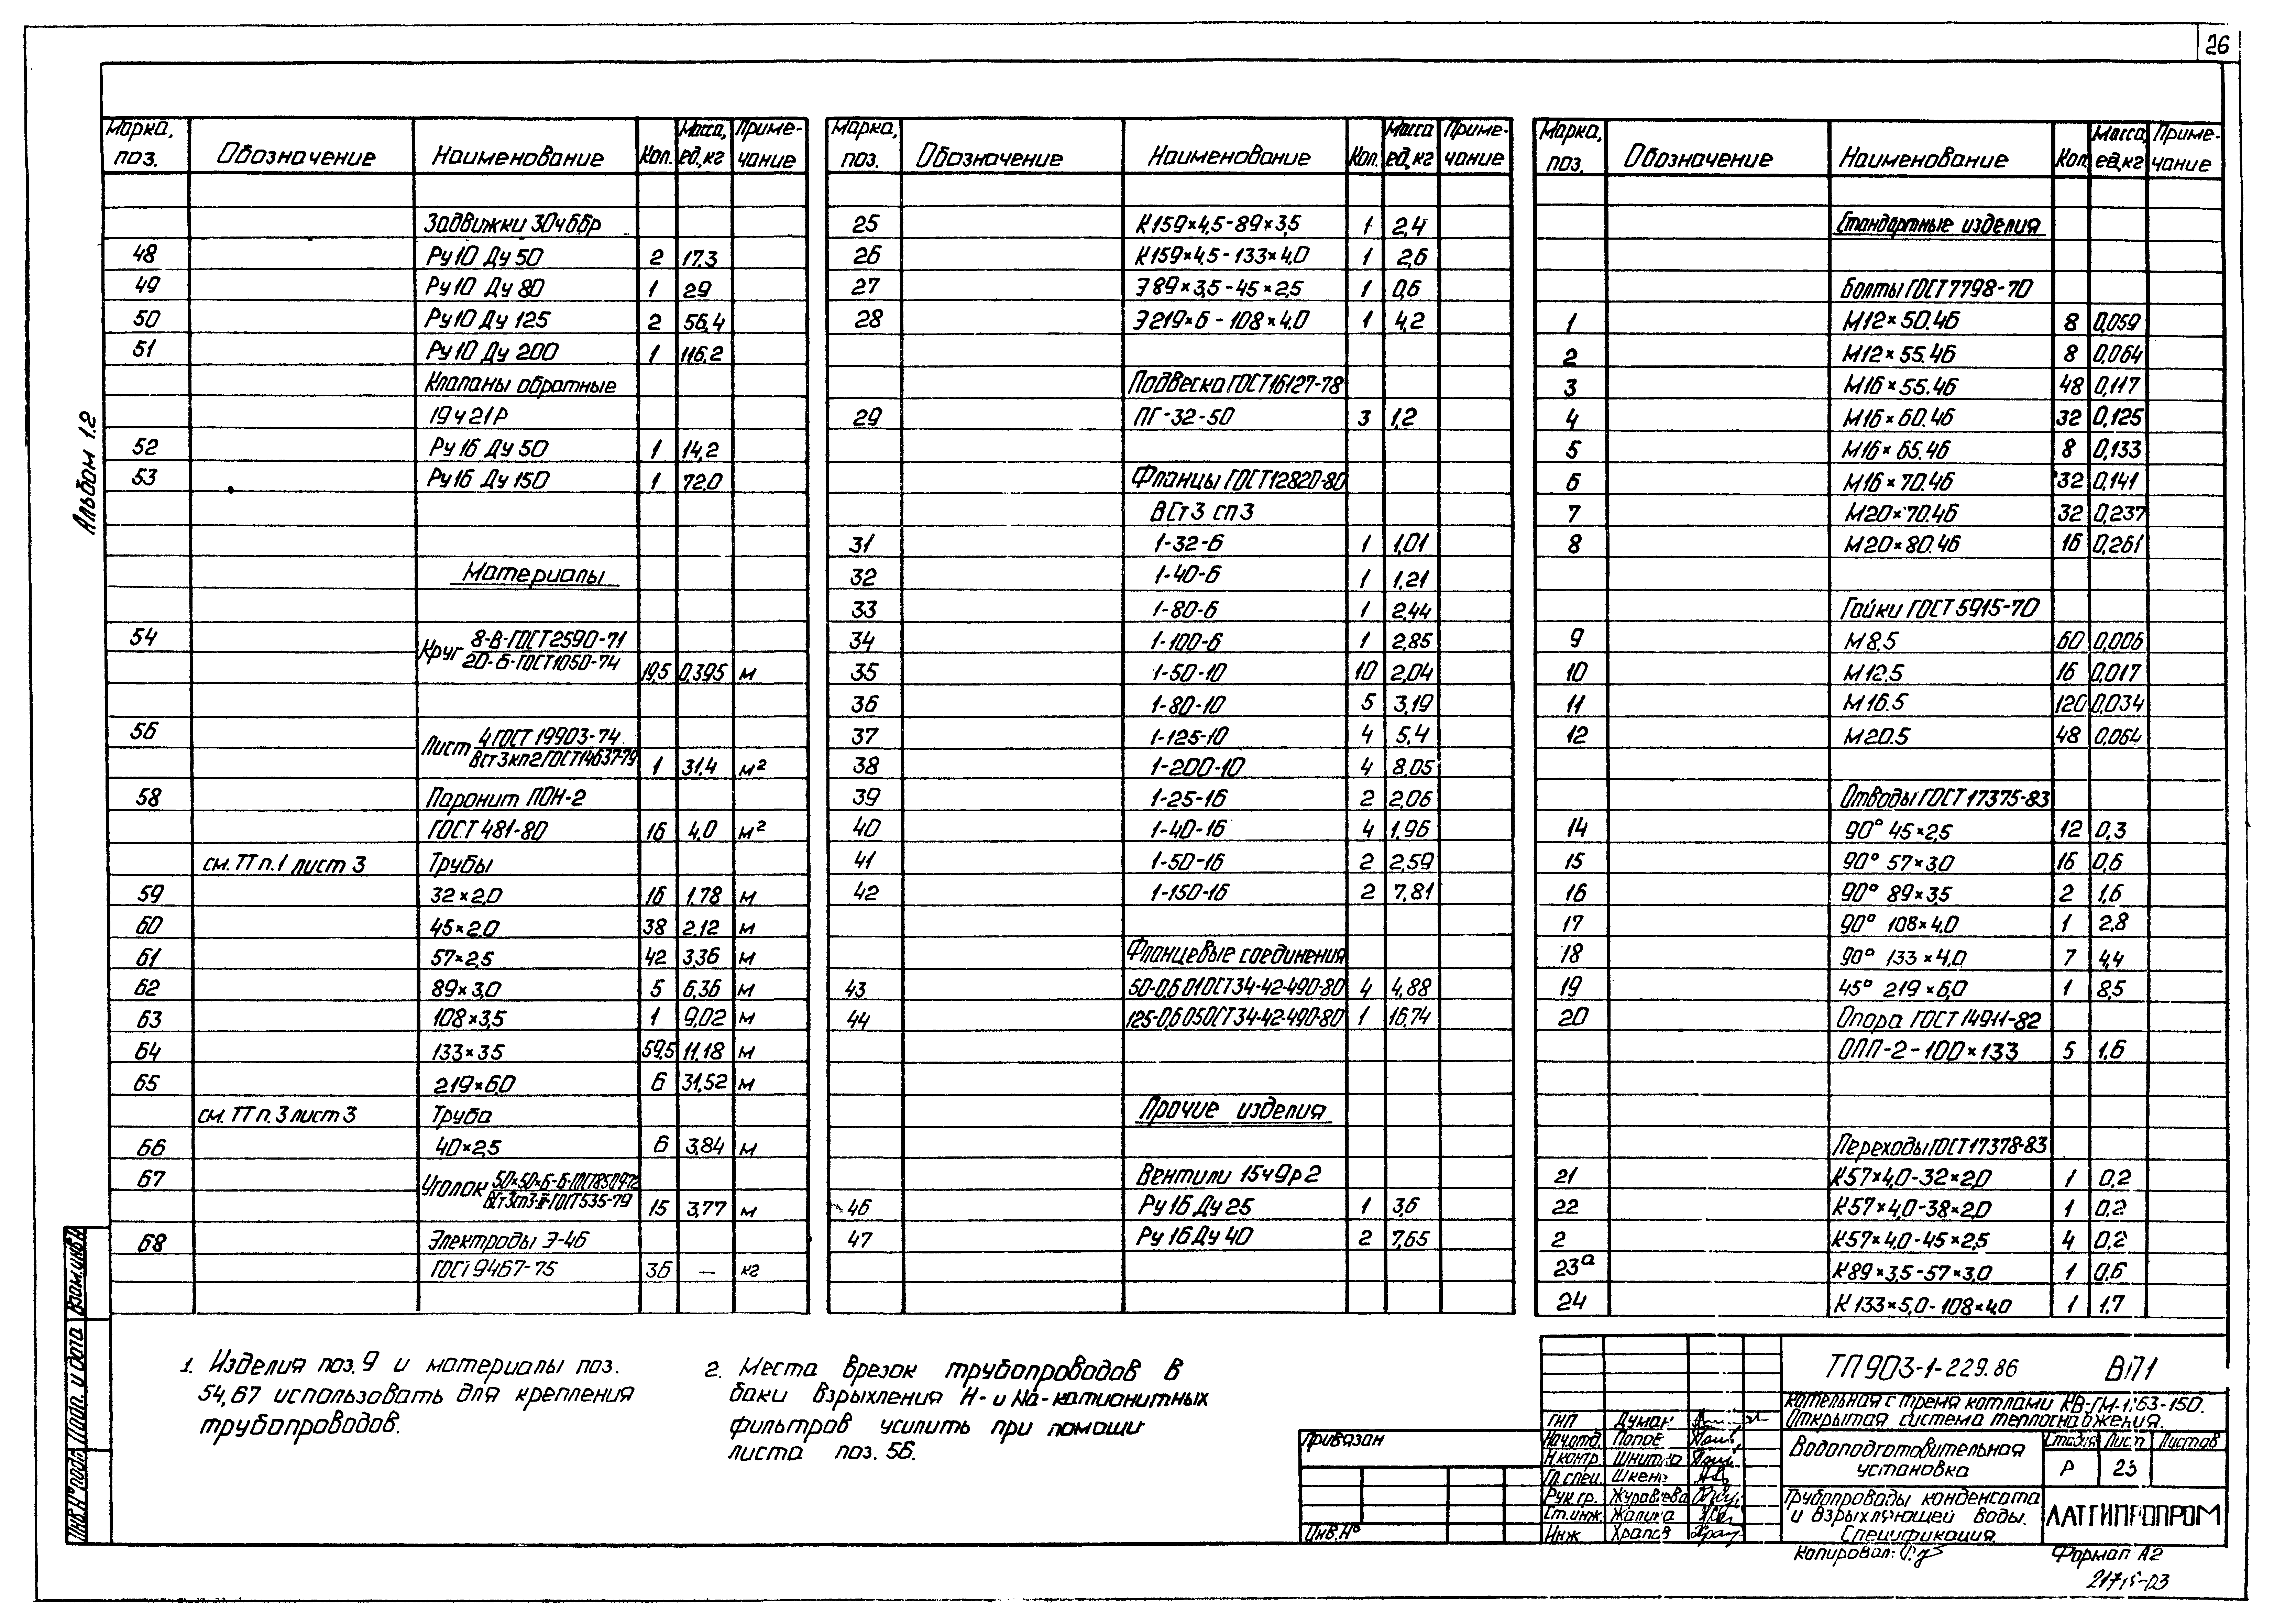 26
Альбом 1.2
Марка, поз. Обозначение Наименование Кол. Масса, ед,кг Примечание
Задвижки 30ч6бр
48 Ру10 Ду 50 2 17.3
49 Ру10 Ду 80 1 29
50 Ру10 Ду 125 2 56,4
51 Ру10 Ду 200 1 116,2
Клапаны обратные
19ч21Р
52 Ру 16 Ду 50 1 14,2
53 Ру16 Ду 150 1 72,0
Материалы
54 Круг 8-В-ГОСТ2590-71
20-б-ГОСТ1050-74 19,5 0,395 м
56 Лист 4 ГОСТ 19903-74
ВСт3кп2ГОСТ14637-79 1 31,4 м²
58 Паронит ПОН-2
ГОСТ 481-80 16 4,0 м²
см. ТТ п.1 лист 3 Трубы
59 32×2,0 16 1.78 м
60 45×2.0 38 2.12 м
61 57×2,5 42 3,36 м
62 89×3,0 5 6,36 м
63 108×3,5 1 9,02 м
64 133×3.5 59,5 11.18 м
65 219×6,0 6 31,52 м
см. ТТ п. 3 лист 3 Труба
66 40×2,5 6 3,84 м
67 Уголок 50×50×6-Б-ГОСТ8509-72
ГОСТ535-79 15 3,77 м
68 Электроды Э-46
ГОСТ 9467-75 36 — кг
Марка, поз. Обозначение Наименование Кол. Масса ед,кг Примечание
25 К159×4,5-89×3,5 1 2,4
26 К159×4.5-133×4,0 1 2,6
27 Э89×3,5-45×2,5 1 0,6
28 Э219×6-108×4,0 1 4,2
Подвеска ГОСТ16127-78
29 ПГ-32-50 3 1,2
Фланцы ГОСТ12820-80
ВСт3 сп3
31 1-32-6 1 1,01
32 1-40-6 1 1,21
33 1-80-6 1 2,44
34 1-100-6 1 2,85
35 1-50-10 10 2,04
36 1-80-10 5 3,19
37 1-125-10 4 5.4
38 1-200-10 4 8,05
39 1-25-16 2 2,06
40 1-40-16 4 1.96
41 1-50-16 2 2,59
42 1-150-16 2 7,81
Фланцевые соединения
43 50-0,6 01ОСТ34-42-490-80 4 4,88
44 125-0,6 05ОСТ34-42-490-80 1 16,74
Прочие изделия
Вентили 15ч9р2
46 Ру 16 Ду 25 1 3,6
47 Ру 16 Ду 40 2 7,65
Марка, поз. Обозначение Наименование Кол Масса, ед,кг Примечание
Стандартные изделия
Болты ГОСТ 7798-70
1 М12×50.46 8 0,059
2 М12×55.46 8 0,064
3 М16×55.46 48 0,117
4 М16×60.46 32 0,125
5 М16×65.46 8 0,133
6 М16×70.46 32 0,141
7 М20×70.46 32 0,237
8 М20×80.46 16 0,261
Гайки ГОСТ 5915-70
9 М8.5 60 0,006
10 М12.5 16 0,017
11 М16.5 120 0,034
12 М20.5 48 0,064
Отводы ГОСТ 17375-83
14 90° 45×2,5 12 0,3
15 90° 57×3,0 16 0,6
16 90° 89×3,5 2 1,6
17 90° 108×4,0 1 2,8
18 90° 133×4,0 7 4,4
19 45° 219×6,0 1 8,5
20 Опора ГОСТ 14911-82
ОПП-2-100×133 5 1,6
Переходы ГОСТ17378-83
21 К57×4,0-32×2,0 1 0,2
22 К57×4,0-38×2,0 1 0,2
2 К57×4,0-45×2,5 4 0,2
23а К89×3,5-57×3,0 1 0,6
24 К 133×5,0-108×4,0 1 1,7
1. Изделия поз. 9 и материалы поз.
54,67 использовать для крепления
трубопроводов.
2. Места врезок трубопроводов в
баки взрыхления Н- и Na-катионитных
фильтров усилить при помощи
листа поз. 56.
Взам.инв.№
Подп. и дата
Инв.№ подл.
Привязан
Инв.№
ТП 903-1-229.86 ВП1
Котельная с тремя котлами КВ-ГМ-1,63-150.
Открытая система теплоснабжения.
ГИП Думан
Нач.отд. Попов
Н.контр. Шнитко
Гл.спец. Шкене
Рук.гр. Журавлева
Ст.инж. Жалина
Инж Храпов
Водоподготовительная
установка
Стадия Лист Листов
Р 23
Трубопроводы конденсата
и взрыхляющей воды.
Спецификация.
ЛАТГИПРОПРОМ
Копировал:
Формат А2